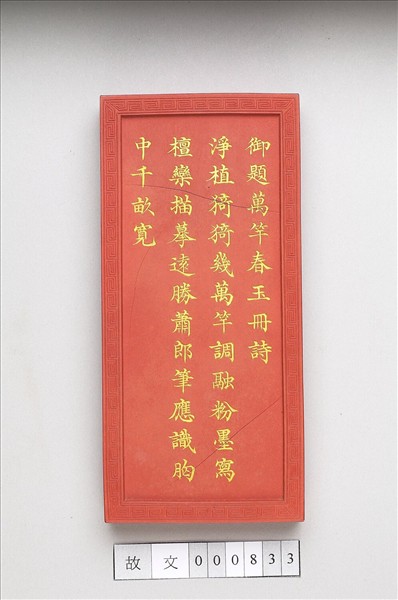 御題萬竿春玉冊詩
淨植猗猗幾萬竿調融粉墨寫
檀欒描摹遠勝蕭郎筆應識胸
中千畝寬
故文000833